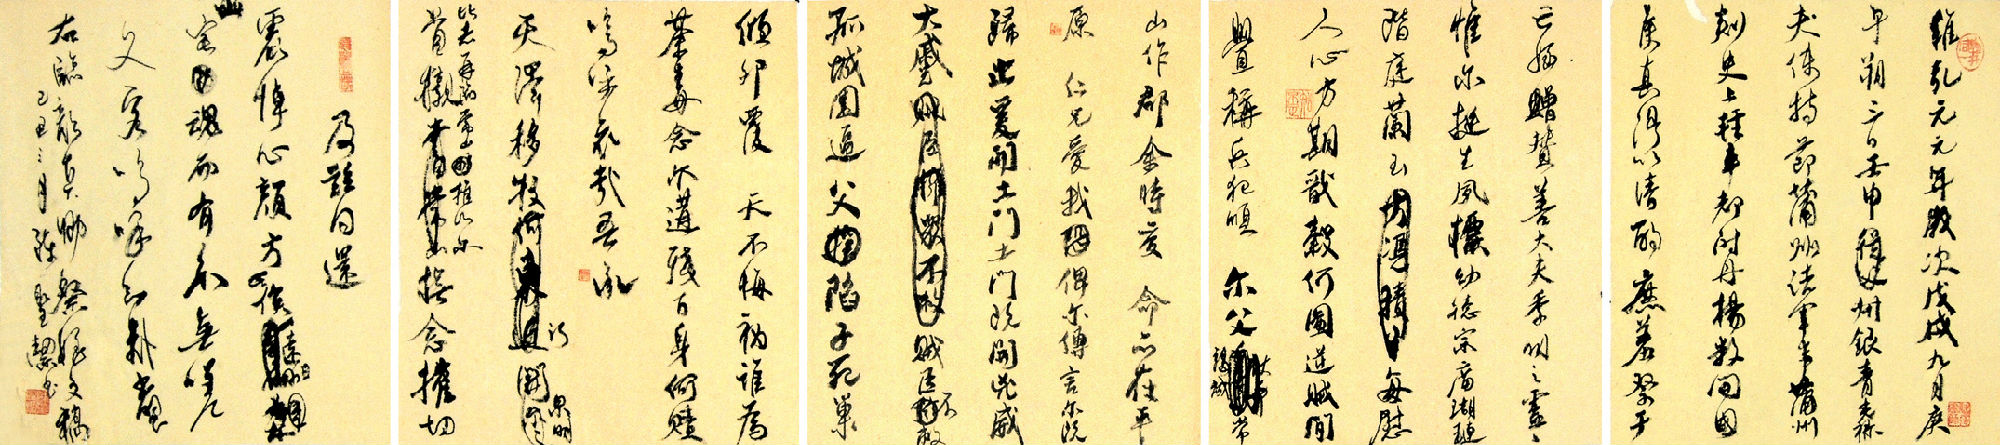 維乾元元年歲次戊戌九月庚
午朔三日壬申州銀青光祿
夫使持節蒲州諸軍事蒲州
刺史上輕車都尉丹楊縣開國
侯真卿以清酌庶羞祭于
亡姪贈贊善大夫季明之靈
惟爾挺生夙標幼德宗廟瑚璉
階庭蘭玉每慰
人心方期戩穀何圖逆賊閒
釁稱兵犯順 爾父竭誠常
山作郡余時受 命亦在平
原 仁兄愛我俾爾傳言爾既
歸止爰開土門土門既開凶威
大蹙賊臣不救
孤城圍逼父陷子死巢
傾卵覆 天不悔禍誰為
荼毒念爾遘殘百身何贖
嗚呼哀哉吾承
天澤移牧河關泉明
比者再陷常山攜爾
首櫬撫念摧切
及茲同還
震悼心顏方俟
宅魂而有知無嗟久
客嗚呼哀哉尚饗
右臨顏真卿祭姪文稿
己丑三月